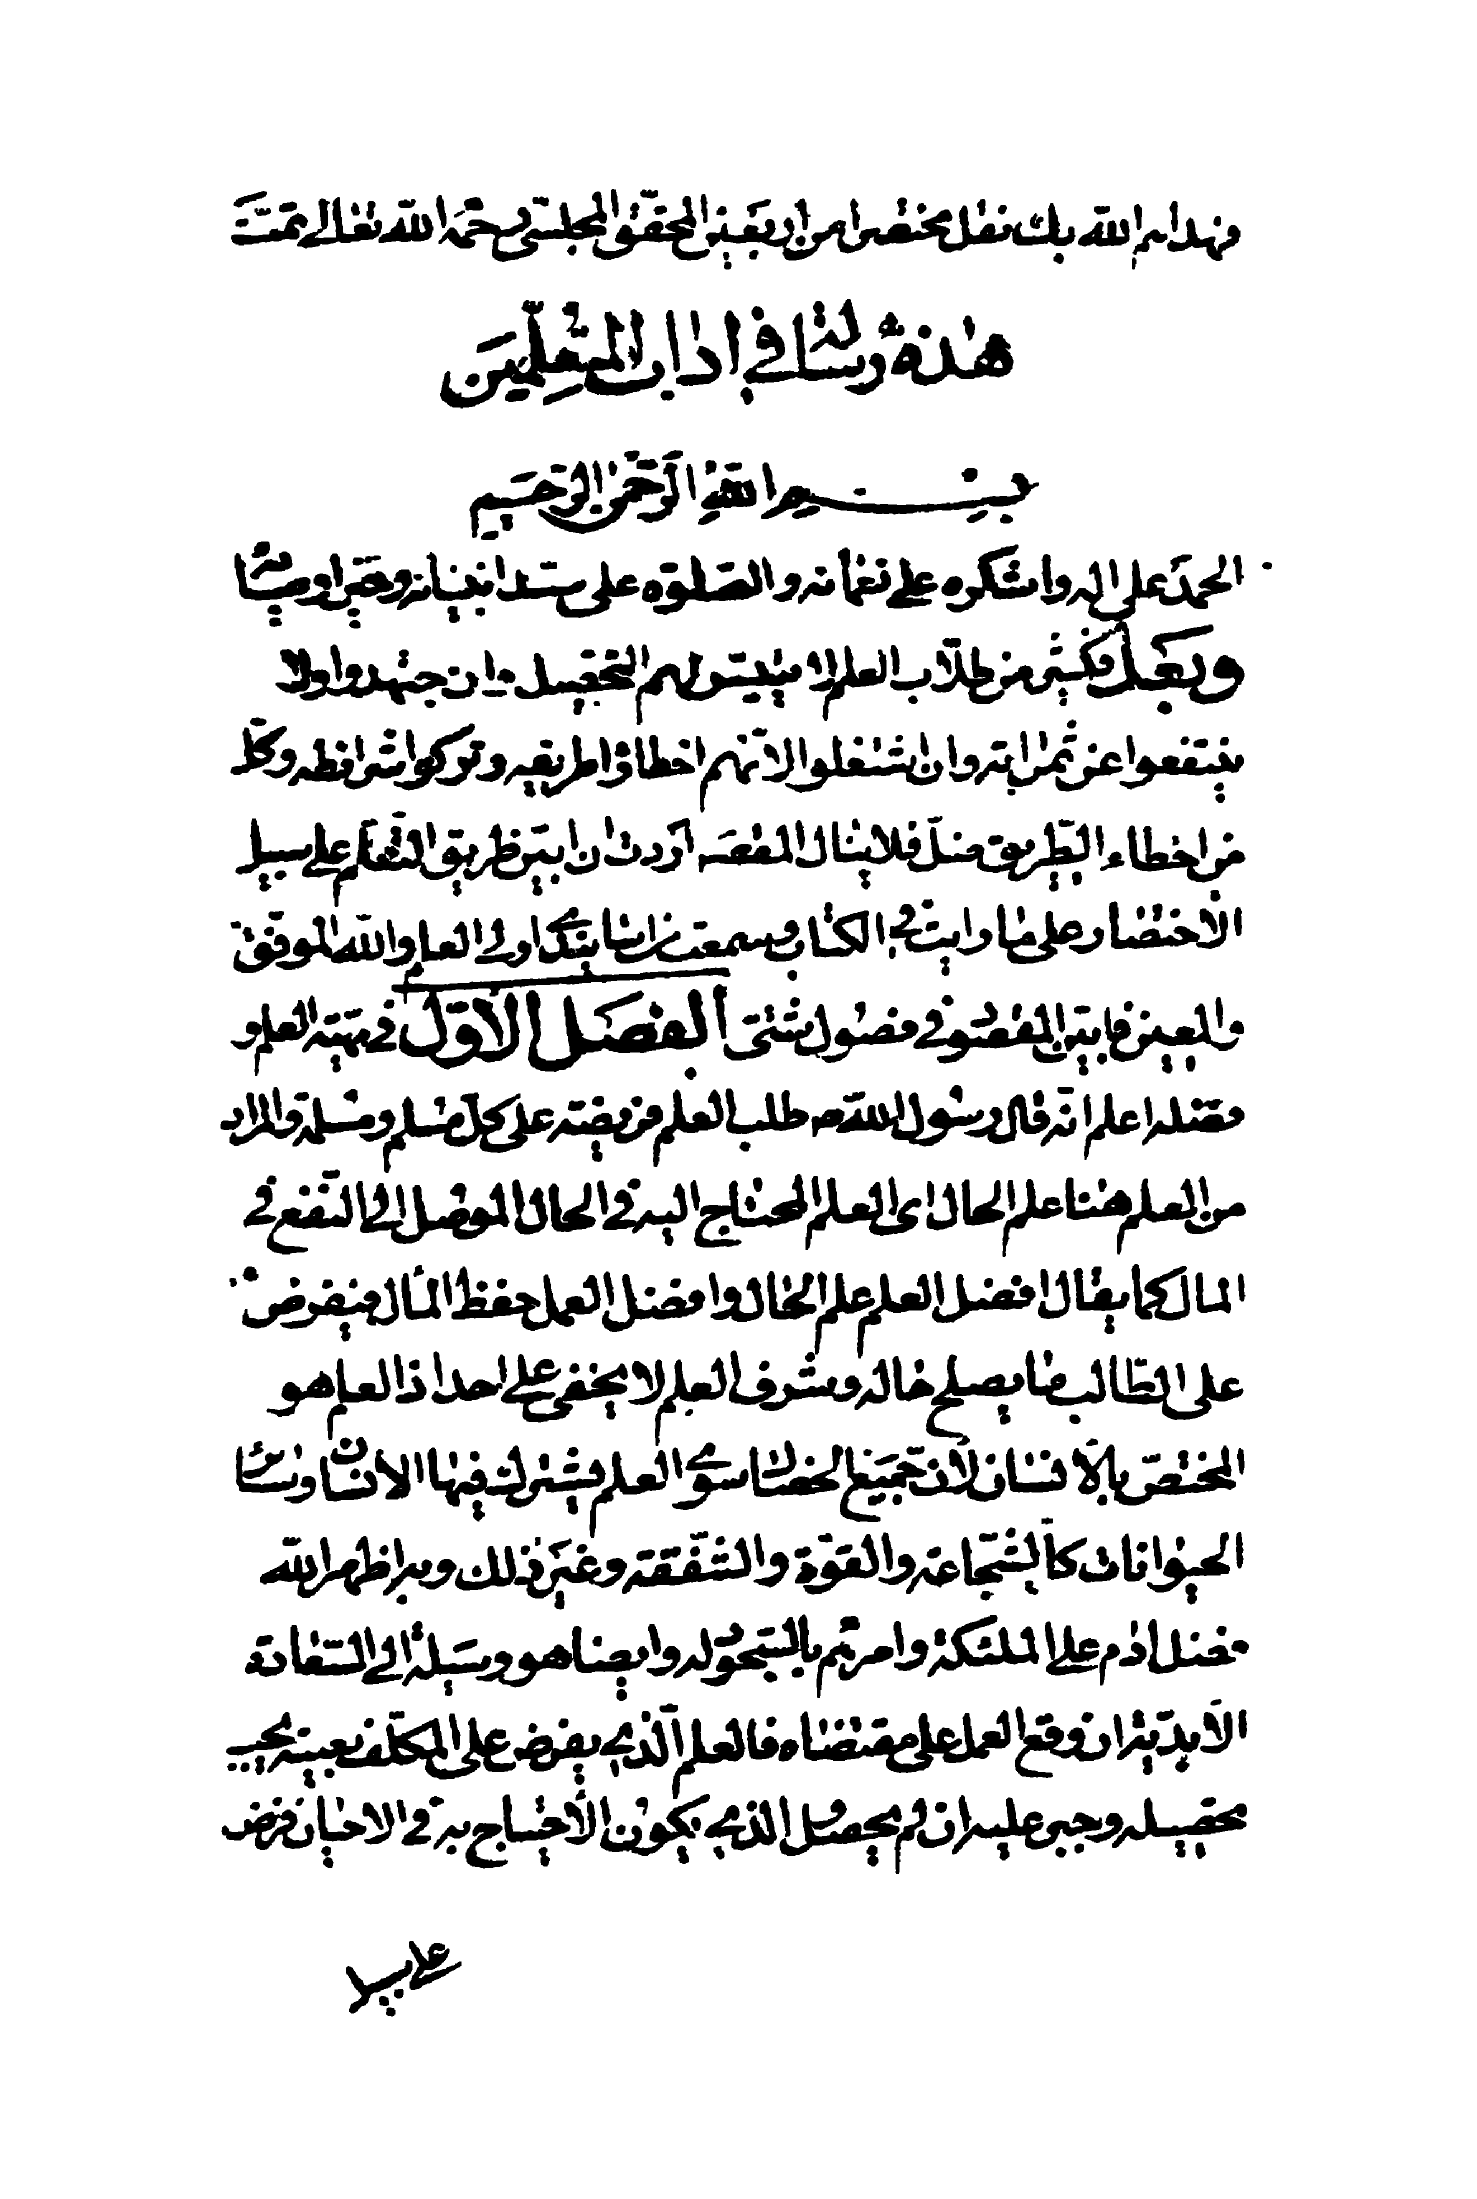 فهداهم الله بك نقل مختصرا من اربعين المحقق المجلسي رحمه الله تعالى تمت
هذه رسالة في اداب المتعلمين
بسم الله الرحمن الرحيم
الحمد على اله واشكره على نعمائه والصلوة على سيد انبيائه وخير اوصيائه
وبعد فكثير من طلاب العلم لا يتيسر لهم التحصيل وان جتهدوا ولا
ينتفعوا عن ثمراته وان اشتغلوا لانهم اخطاؤا طريقه وتركوا شرائطه وكل
من اخطاء الطريق ضل فلا ينال المقصد اردت ان ابين طريق التعلم على سبيل
الاختصار على ما رايت في الكتاب وسمعت من اساتيدى اولى العلم والله الموفق
والمعين فابين المقصود في فصول شتى الفصل الاول في مهية العلم و
فضله اعلم انه قال رسول الله ص طلب العلم فريضة على كل مسلم ومسلمة والمراد
من العلم هنا علم الحال اى العلم المحتاج اليه في الحال الموصل الى النفع في
المال كما يقال افضل العلم علم الحال وافضل العمل حفظ المال فيفرض
على الطالب ما يصلح حاله وشرف العلم لا يخفى على احد اذ العلم هو
المختص بالانسان لان جميع الخصال سوى العلم يشترك فيها الانسان وسائر
الحيوانات كالشجاعة والقوة والشفقة وغير ذلك وبه اظهر الله
فضل ادم على الملئكة وامرهم بالسجود له وايضا هو وسيلة الى السعادة
الابدية ان وقع العمل على مقتضاه فالعلم الذى يفرض على المكلف بعينه يجب
تحصيله وجبر عليه ان لم يحصل الذى يكون الاحتياج به في الاحيان فرض
على سبيل